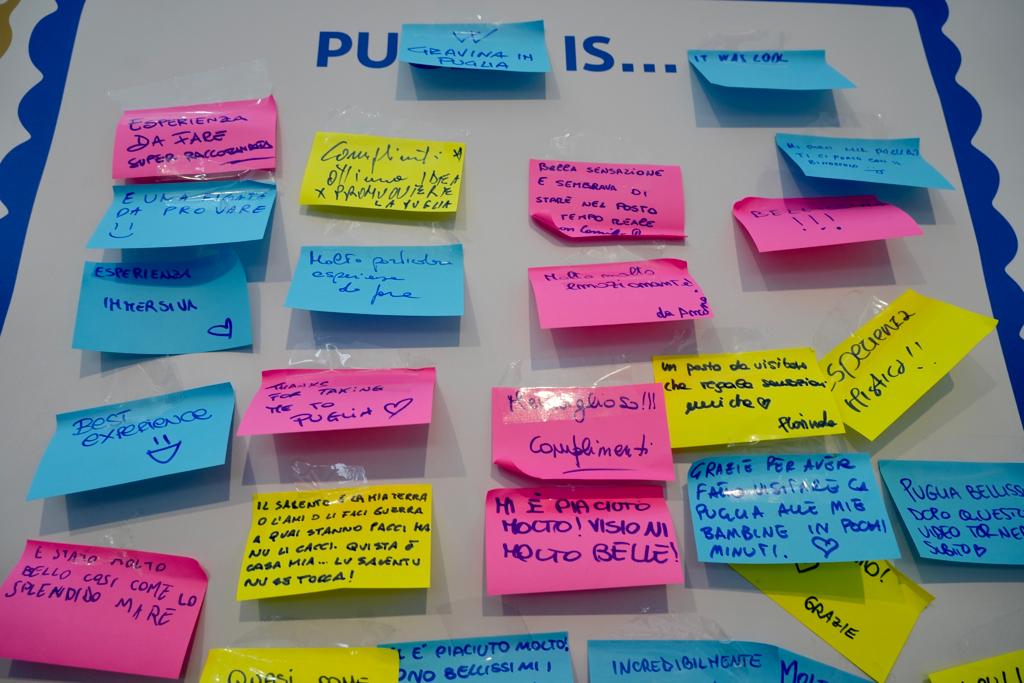 PU
IS...
GRAVINA IN
PUGLIA
IT WAS COOL
ESPERIENZA
DA FARE
SUPER RACCOMANDATA
Complimenti
Ottima IDEA
X PROMUOVERE
LA PUGLIA
BELLA SENSAZIONE
E SEMBRAVA DI
STARE NEL POSTO
TEMPO REALE
TI CI PORTO CON IL
E UNA
DA PROVARE
ESPERIENZA
IMMERSIVA
Molto particolare
esperienza
da fare
Molto molto
emozionante
da
!!!
BEST
EXPERIENCE
THANKS
FOR TAKING
ME TO
PUGLIA
Meraviglioso!!!
Complimenti
Un posto da visitare
che regala sensazioni
uniche
Florinda
ESPERIENZA
MISTICA!!
E STATO MOLTO
BELLO COSI COME LO
SPLENDIDO MARE
IL SALENTO È LA MIA TERRA
O L'AMI O LI FACI GUERRA
A QUAI STANNO PACCI HA
NU LI CACCI. QUISTA È
CASA MIA... LU SALENTU
NU SE TOCCA!
MI È PIACIUTO
MOLTO! VISIONI
MOLTO BELLE!
GRAZIE PER AVER
FATTO VISITARE LA
PUGLIA ALLE MIE
BAMBINE IN POCHI
MINUTI.
PUGLIA BELLISS
DOPO QUESTO
VIDEO TORNE
SUBITO
GRAZIE
QUASI COME
E' PIACIUTO MOLTO!
ONO BELLISSIMI!
INCREDIBILMENTE